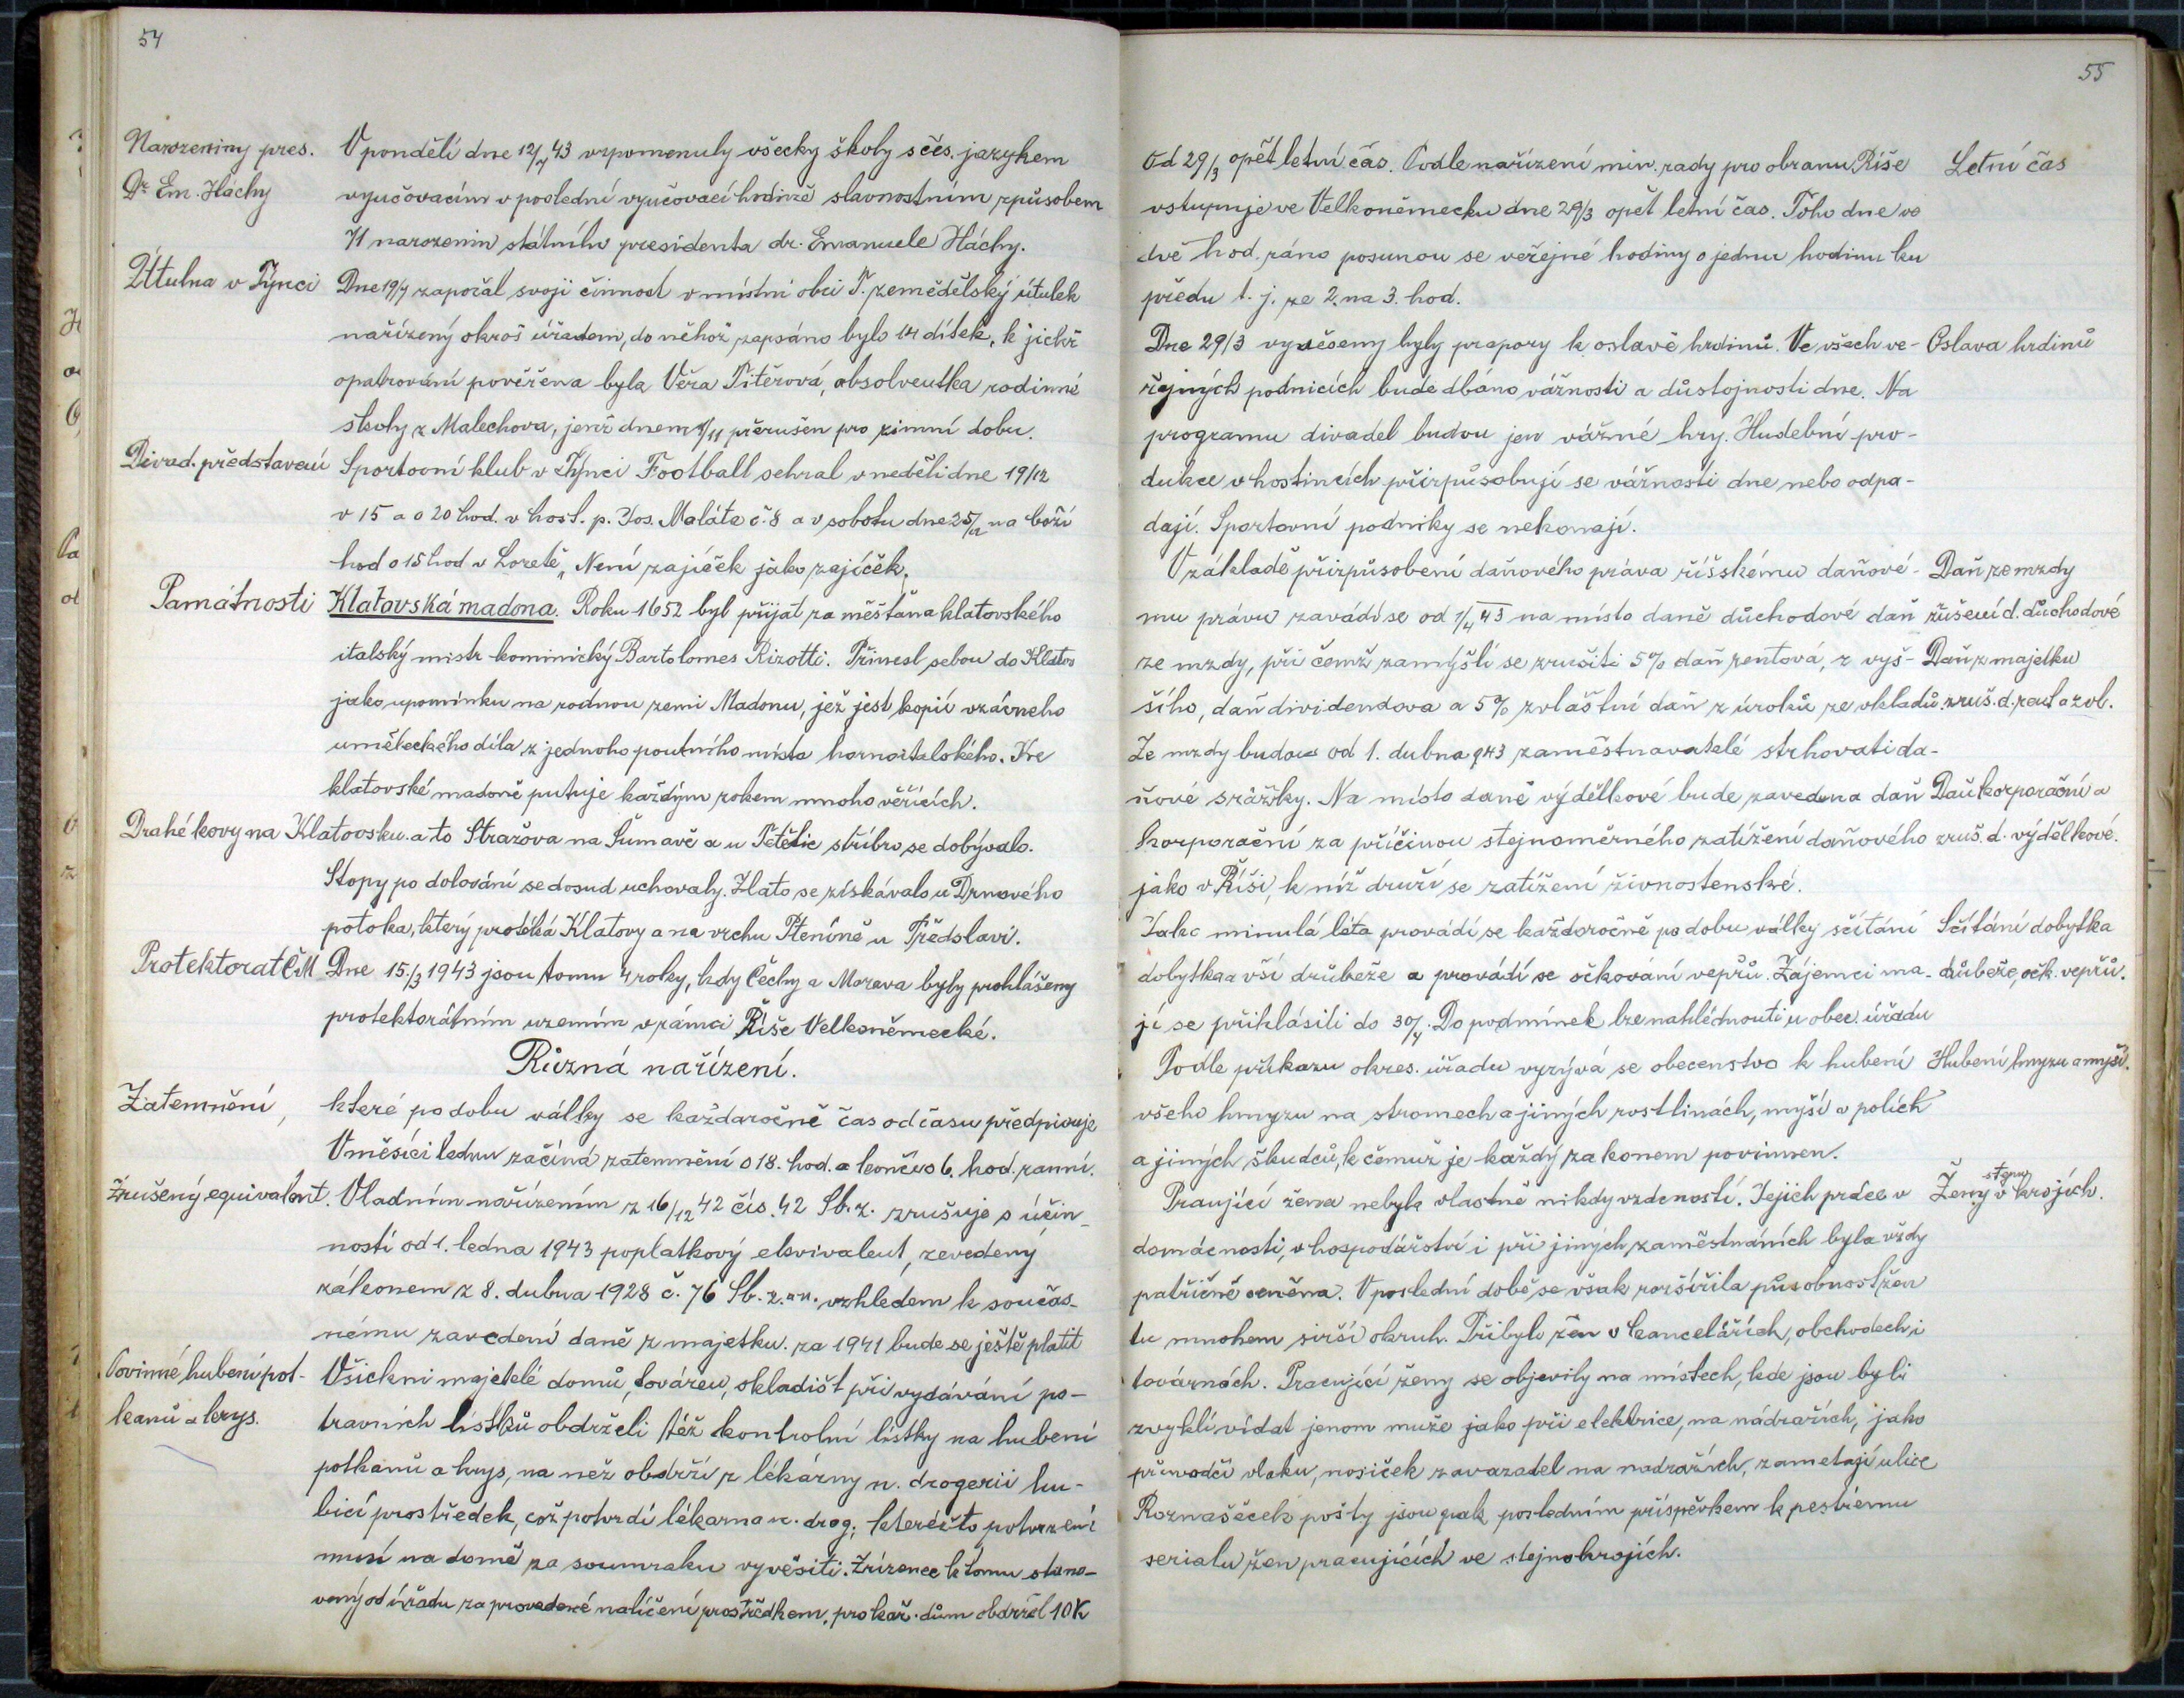 54
Narozeniny pres.
Dr Em. Háchy
V pondělí dne 12/7 43 vzpomenuly všecky školy s čes. jazykem
vyučovacím v poslední vyučovací hodině slavnostním způsobem
71 narozenin státního presidenta dr. Emanuele Háchy.
Útulna v Týnci
Dne 19/7 započal svoji činnost v místní obci T. zemědělský útulek
nařízený okres úřadem, do něhož zapsáno bylo 14 dítek, k jichž
opatrování pověřena byla Věra Titěrová, absolventka rodinné
školy z Malechova, jenž dnem 1/11 přerušen pro zimní dobu.
Divad. představení
Sportovní klub v Týnci Football sehral v neděli dne 19/12
v 15 a o 20 hod. v host. p. Jos. Maláta č. 8 a v sobotu dne 25/12 na boží
hod o 15 hod v Loretě „Není zajíček jako zajíček.
Památnosti
Klatovská madona. Roku 1652 byl přijat za měšťana klatovského
italský mistr kominický Bartolomes Rizotti. Přinesl sebou do Klatov
jako upomínku na rodnou zemi Madonu, jež jest kopií vzácneho
uměleckého díla z jednoho poutního místa hornoitalského. Ke
klatovské madoně putuje každým rokem mnoho věřících.
Drahé kovy na Klatovsku. a to Stražova na Šumavě a u Tětětic stříbro se dobývalo.
Stopy po dolování se dosud uchovaly. Zlato se získávalo u Drnového
potoka, který protéká Klatovy a na vrchu Pteníně u Předslavi.
Protektorat ČM
Dne 15./3 1943 jsou tomu 4 roky, kdy Čechy a Morava byly prohlášeny
protektorátním uzemím v rámci Říše Velkoněmecké.
Různá nařízení.
Zatemnění,
které po dobu války se každaročně čas od času předpisuje
V měsíci lednu začíná zatemnění o 18. hod. a končí o 6. hod. ranní.
Zrušený equivalent.
Vladním nařízením z 16/12 42 čís. 42 Sb. z. zrušuje s účin-
ností od 1. ledna 1943 poplatkový ekvivalent, zevedený
zákonem z 8. dubna 1928 č. 76 Sb. z. a n. vzhledem k součas-
nému zavedení daně z majetku. za 1941 bude se ještě platit
Povinné hubení pot-
kanů a krys.
Všickni majetelé domů, továren, skladišt při vydávání po-
travních lístků obdrželi též kontrolní lístky na hubení
potkanů a krys, na než obdrží z lékárny n. drogerii hu-
bicí prostředek, což potvrdí lékarna n. drog; kteréžto potvrzení
musí na domě za soumraku vyvěsiti. Zřízenec k tomu stano-
vený od úřadu za provedené nalíčení prostředkem, pro kaž. dům obdržel 10 K
55
Od 29/3 opět letní čas. Podle nařízení min. rady pro obranu Říše
Letní čas
vstupuje ve Velkoněmecku dne 29/3 opět letní čas. Toho dne ve
dvě hod. ráno posunou se veřejné hodiny o jednu hodinu ku
předu t. j. ze 2. na 3. hod.
Dne 29/3 vyvěseny byly prapory k oslavě hrdinů. Ve všech ve-
Oslava hrdinů
řejných podnicích bude dbáno vážnosti a důstojnosti dne. Na
programu divadel budou jen vážné hry. Hudební pro-
dukce v hostincích přizpůsobují se vážnosti dne nebo odpa-
dají. Sportovní podniky se nekonají.
V základě přizpůsobení daňového práva říšskému daňové-
Daň ze mzdy
mu právu zavádí se od 1/4 43 na místo daně důchodové daň
zrušení d. důchodové
ze mzdy, při čemž zamýšlí se zrušiti 5% daň rentová, z vyš-
Daň z majetku
šího, daň dividendova a 5% zvláštní daň z úroků ze vkladů.
zruš. d. rent a zvl.
Ze mzdy budou od 1. dubna 943 zaměstnavatelé strhovati da-
ňové srážky. Na místo daně výdělkové bude zavedena daň
Daň korporační a
korporační za příčinou stejnoměrného zatížení daňového
zruš. d. výdělkové.
jako v Říši, k níž druží se zatížení živnostenské.
Jako minulá léta provádí se každoročně po dobu války sčítání
Sčítání dobytka
dobytka a vší drůbeže a provádí se očkování vepřů. Zájemci ma-
drůbeže, očk. vepřů.
jí se přihlásiti do 30/4. Do podmínek lze nahlédnouti u obec. úřadu
Podle příkazu okres. úřadu vyzývá se obecenstvo k hubení
Hubení hmyzu a myší.
všeho hmyzu na stromech a jiných rostlinách, myší v polích
a jiných škudců, k čemuž je každý zakonem povinnen.
Praující žena nebyla vlastně nikdy vzdeností. Jejich práce v
Ženy v stejnokrojích.
domácnosti, v hospodářství i při jiných zaměstnáních byla vždy
patřičně oceněna. V poslední době se však rozšířila působnost žen
tu mnohem sirší okruh. Přibylo žen v kancelářích, obchodech i
továrnách. Pracující ženy se objevily na místech, kde jsou byli
zvyklí vídat jenom muže jako při elektrice, na nádražích, jako
průvodčí vlaku, nosiček zavazadel na nadražích, zametají ulice
Roznašeček pošty jsou pak posledním příspěvkem k pestremu
serialu žen pracujících ve stejnokrojích.